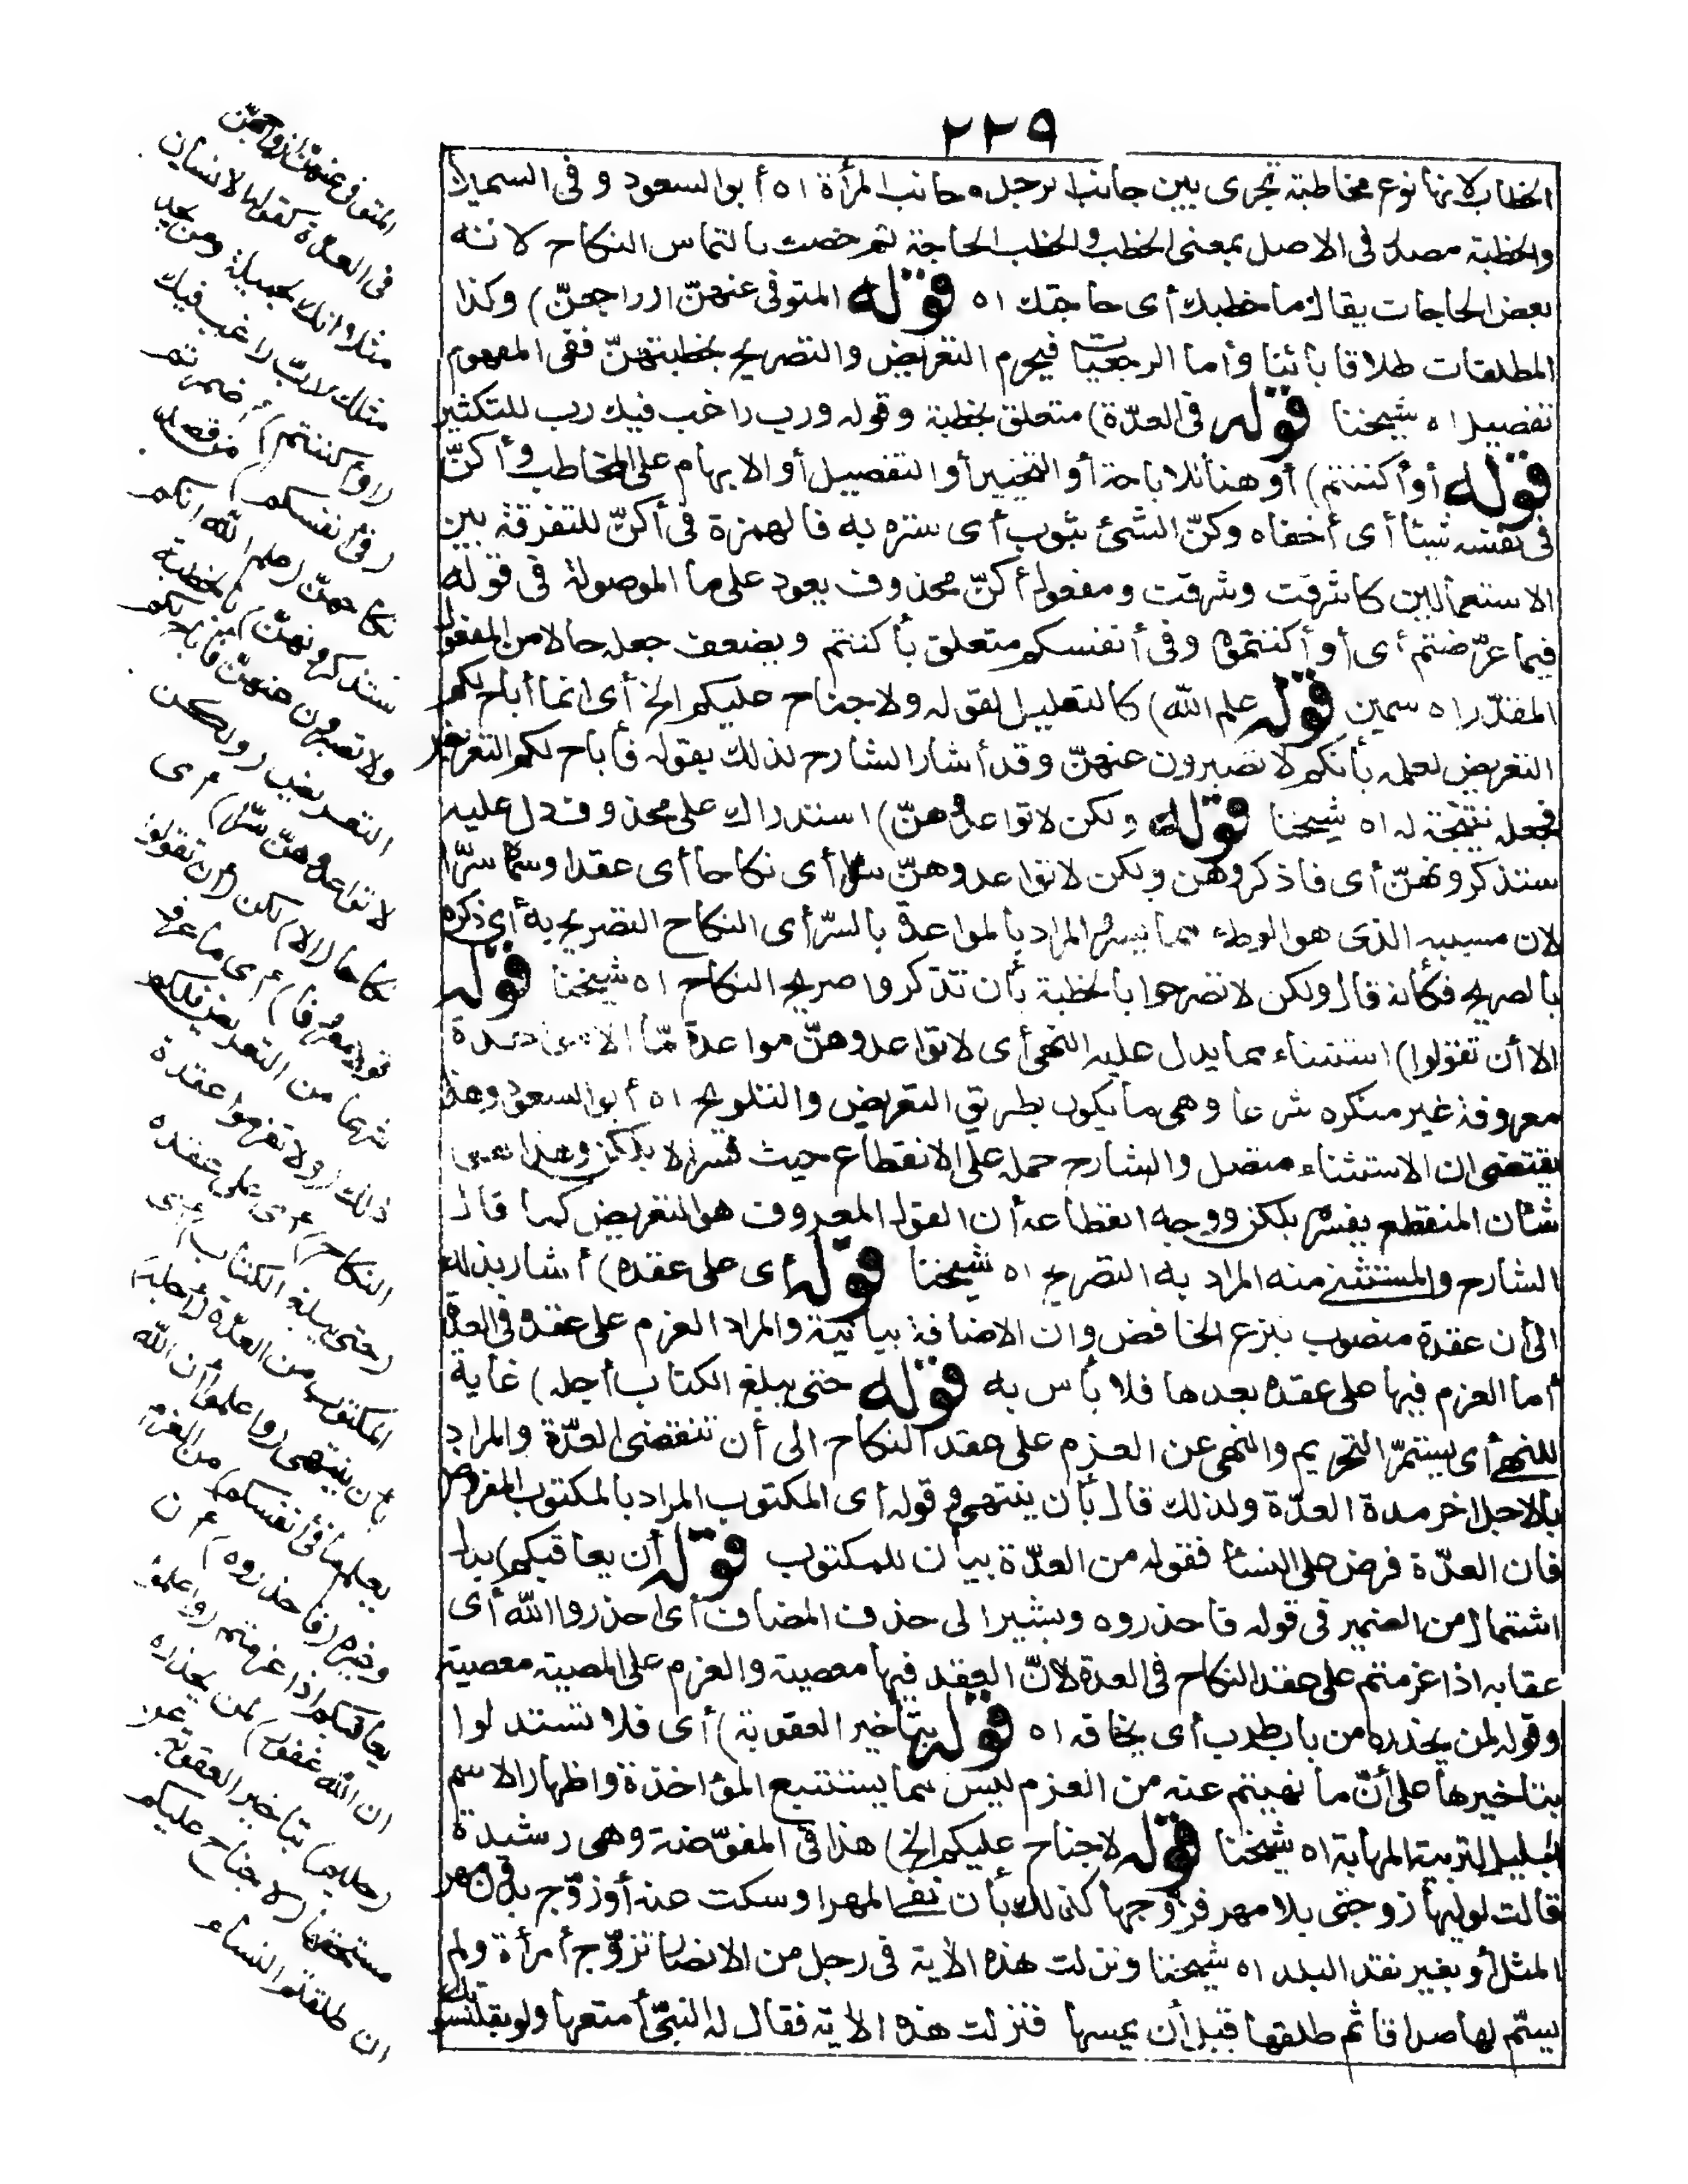 ٢٢٩
الخطاب لانها نوع مخاطبة تجرى بين جانب الرجل وجانب المرأة اه أبو السعود وفى السمين
والخطبة مصدر فى الاصل بمعنى الخطب والخطب الحاجة ثم خصت بالتماس النكاح لانه
بعض الحاجات يقال ما خطبك أى حاجتك اه قوله المتوفى عنهنّ ازواجهنّ) وكذا
المطلقات طلاقا بائنا وأما الرجعيات فيحرم التعريض والتصريح بخطبتهنّ ففى المفهوم
تفصيل اه شيخنا قوله فى العدّة) متعلق بخطبة وقوله ورب راغب فيك رب للتكثير
قوله أو أكننتم) أو هنا للاباحة أو التخيير أو التفصيل أو الابهام على المخاطب وأكنّ
فى نفسه شيئا أى أخفاه وكنّ الشئ بثوب أى ستره به فالهمزة فى أكنّ للتفرقة بين
الاستعمالين كاشرقت وشرقت ومفعول أكنّ محذوف يعود على ما الموصولة فى قوله
فيما عرّضتم أى أو أكننتموه وفى أنفسكم متعلق بأكننتم ويضعف جعله حالا من المفعول
المقدّر اه سمين قوله علم الله) كالتعليل لقوله ولا جناح عليكم الخ أى انما أباح لكم
التعريض لعلمه بأنكم لا تصبرون عنهنّ وقد أشار الشارح لذلك بقوله فأباح لكم التعريض
فجعله نتيجة له اه شيخنا قوله ولكن لا تواعدوهنّ) استدراك على محذوف دل عليه
ستذكرونهنّ أى فاذكروهن ولكن لا تواعدوهنّ سرا أى نكاحا أى عقدا وسماه سرّا
لان مسببه الذى هو الوطء مما يسر المراد بالمواعدة بالسرّ أى النكاح التصريح به أى ذكره
بالصريح فكأنه قال ولكن لا تصرحوا بالخطبة بأن تذكروا صريح النكاح اه شيخنا قوله
الا أن تقولوا) استثناء مما يدل عليه النهى أى لا تواعدوهنّ مواعدة مّا الا مواعدة
معروفة غير منكرة شرعا وهى ما يكون بطريق التعريض والتلويح اه أبو السعود وهذا
يقتضى ان الاستثناء متصل والشارح حمله على الانقطاع حيث فسر الا بلكن وهذا
شان المنقطع يفسر بلكن ووجه انقطاعه أن القول المعروف هو التعريض كما قال
الشارح والمستثنى منه المراد به التصريح اه شيخنا قوله أى على عقده) أشار بذلك
الى أن عقدة منصوب بنزع الخافض وان الاضافة بيانية والمراد العزم على عقده فى العدّة
أما العزم فيها على عقده بعدها فلا بأس به قوله حتى يبلغ الكتاب أجله) غاية
للنهى أى يستمرّ التحريم والنهى عن العزم على عقد النكاح الى أن تنقضى العدّة والمراد
بالاجل اخر مدة العدّة ولذلك قال بأن ينتهى وقوله أى المكتوب المراد بالمكتوب المفروض
فان العدّة فرض على النسا فقوله من العدّة بيان للمكتوب قوله أن يعاقبكم) بدل
اشتمال من الضمير فى قوله فاحذروه ويشير الى حذف المضاف أى احذروا الله أى
عقابه اذا عزمتم على عقد النكاح فى العدة لانّ العقد فيها معصية والعزم على المصية معصية
وقوله لمن يحذره من باب طرب أى يخافه اه قوله بتأخير العقوبة) أى فلا تستدلوا
بتاخيرها على أنّ ما نهيتم عنه من العزم ليس مما يستتبع المؤاخذة واظهار الاسم
الجليل لتربية المهابة اه شيخنا قوله لا جناح عليكم الخ) هذا فى المفوّضة وهى رشيدة
قالت لوليها زوجنى بلا مهر فزوجها كذلك بأن نفى المهر او سكت عنه أو زوّج بدون مهر
المثل أو بغير نقد البلد اه شيخنا ونزلت هذه الآية فى رجل من الانصار تزوّج أمرأة ولم
يسّم لها صداقا ثم طلقها قبل أن يمسها فنزلت هذه الآية فقال له النبىّ أمتعها ولو بقلنسوتك
المتوفى عنهنّ ازواجهنّ
فى العدّة كقول الانسان
مثلا انك لجميلة ومن يجد
مثلك ورب راغب فيك
(أو أكننتم) أضمرتم
(فى أنفسكم) من قصد
نكاحهنّ (علم الله انكم
ستذكرونهنّ) بالخطبة
ولا تصبرون عنهنّ فأباح لكم
التعريض (ولكن
لا تواعدوهنّ سرّا) أى
نكاحا (الا) لكن (أن تقولوا
قولا معروفا) أى ما عرف
شرعا من التعريض فلكم
ذلك (ولا تعزموا عقدة
النكاح) أى على عقده
(حتى يبلغ الكتاب) أى
المكتوب من العدّة (أجله)
بأن ينتهى (واعلموا أن الله
يعلم ما فى أنفسكم) من العزم
وغيره (فاحذروه) أن
يعاقبكم اذا عزمتم (واعلموا
ان الله غفور) لمن يحذره
(حليم) بتأخير العقوبة عن
مستحقها (لا جناح عليكم
ان طلقتم النساء